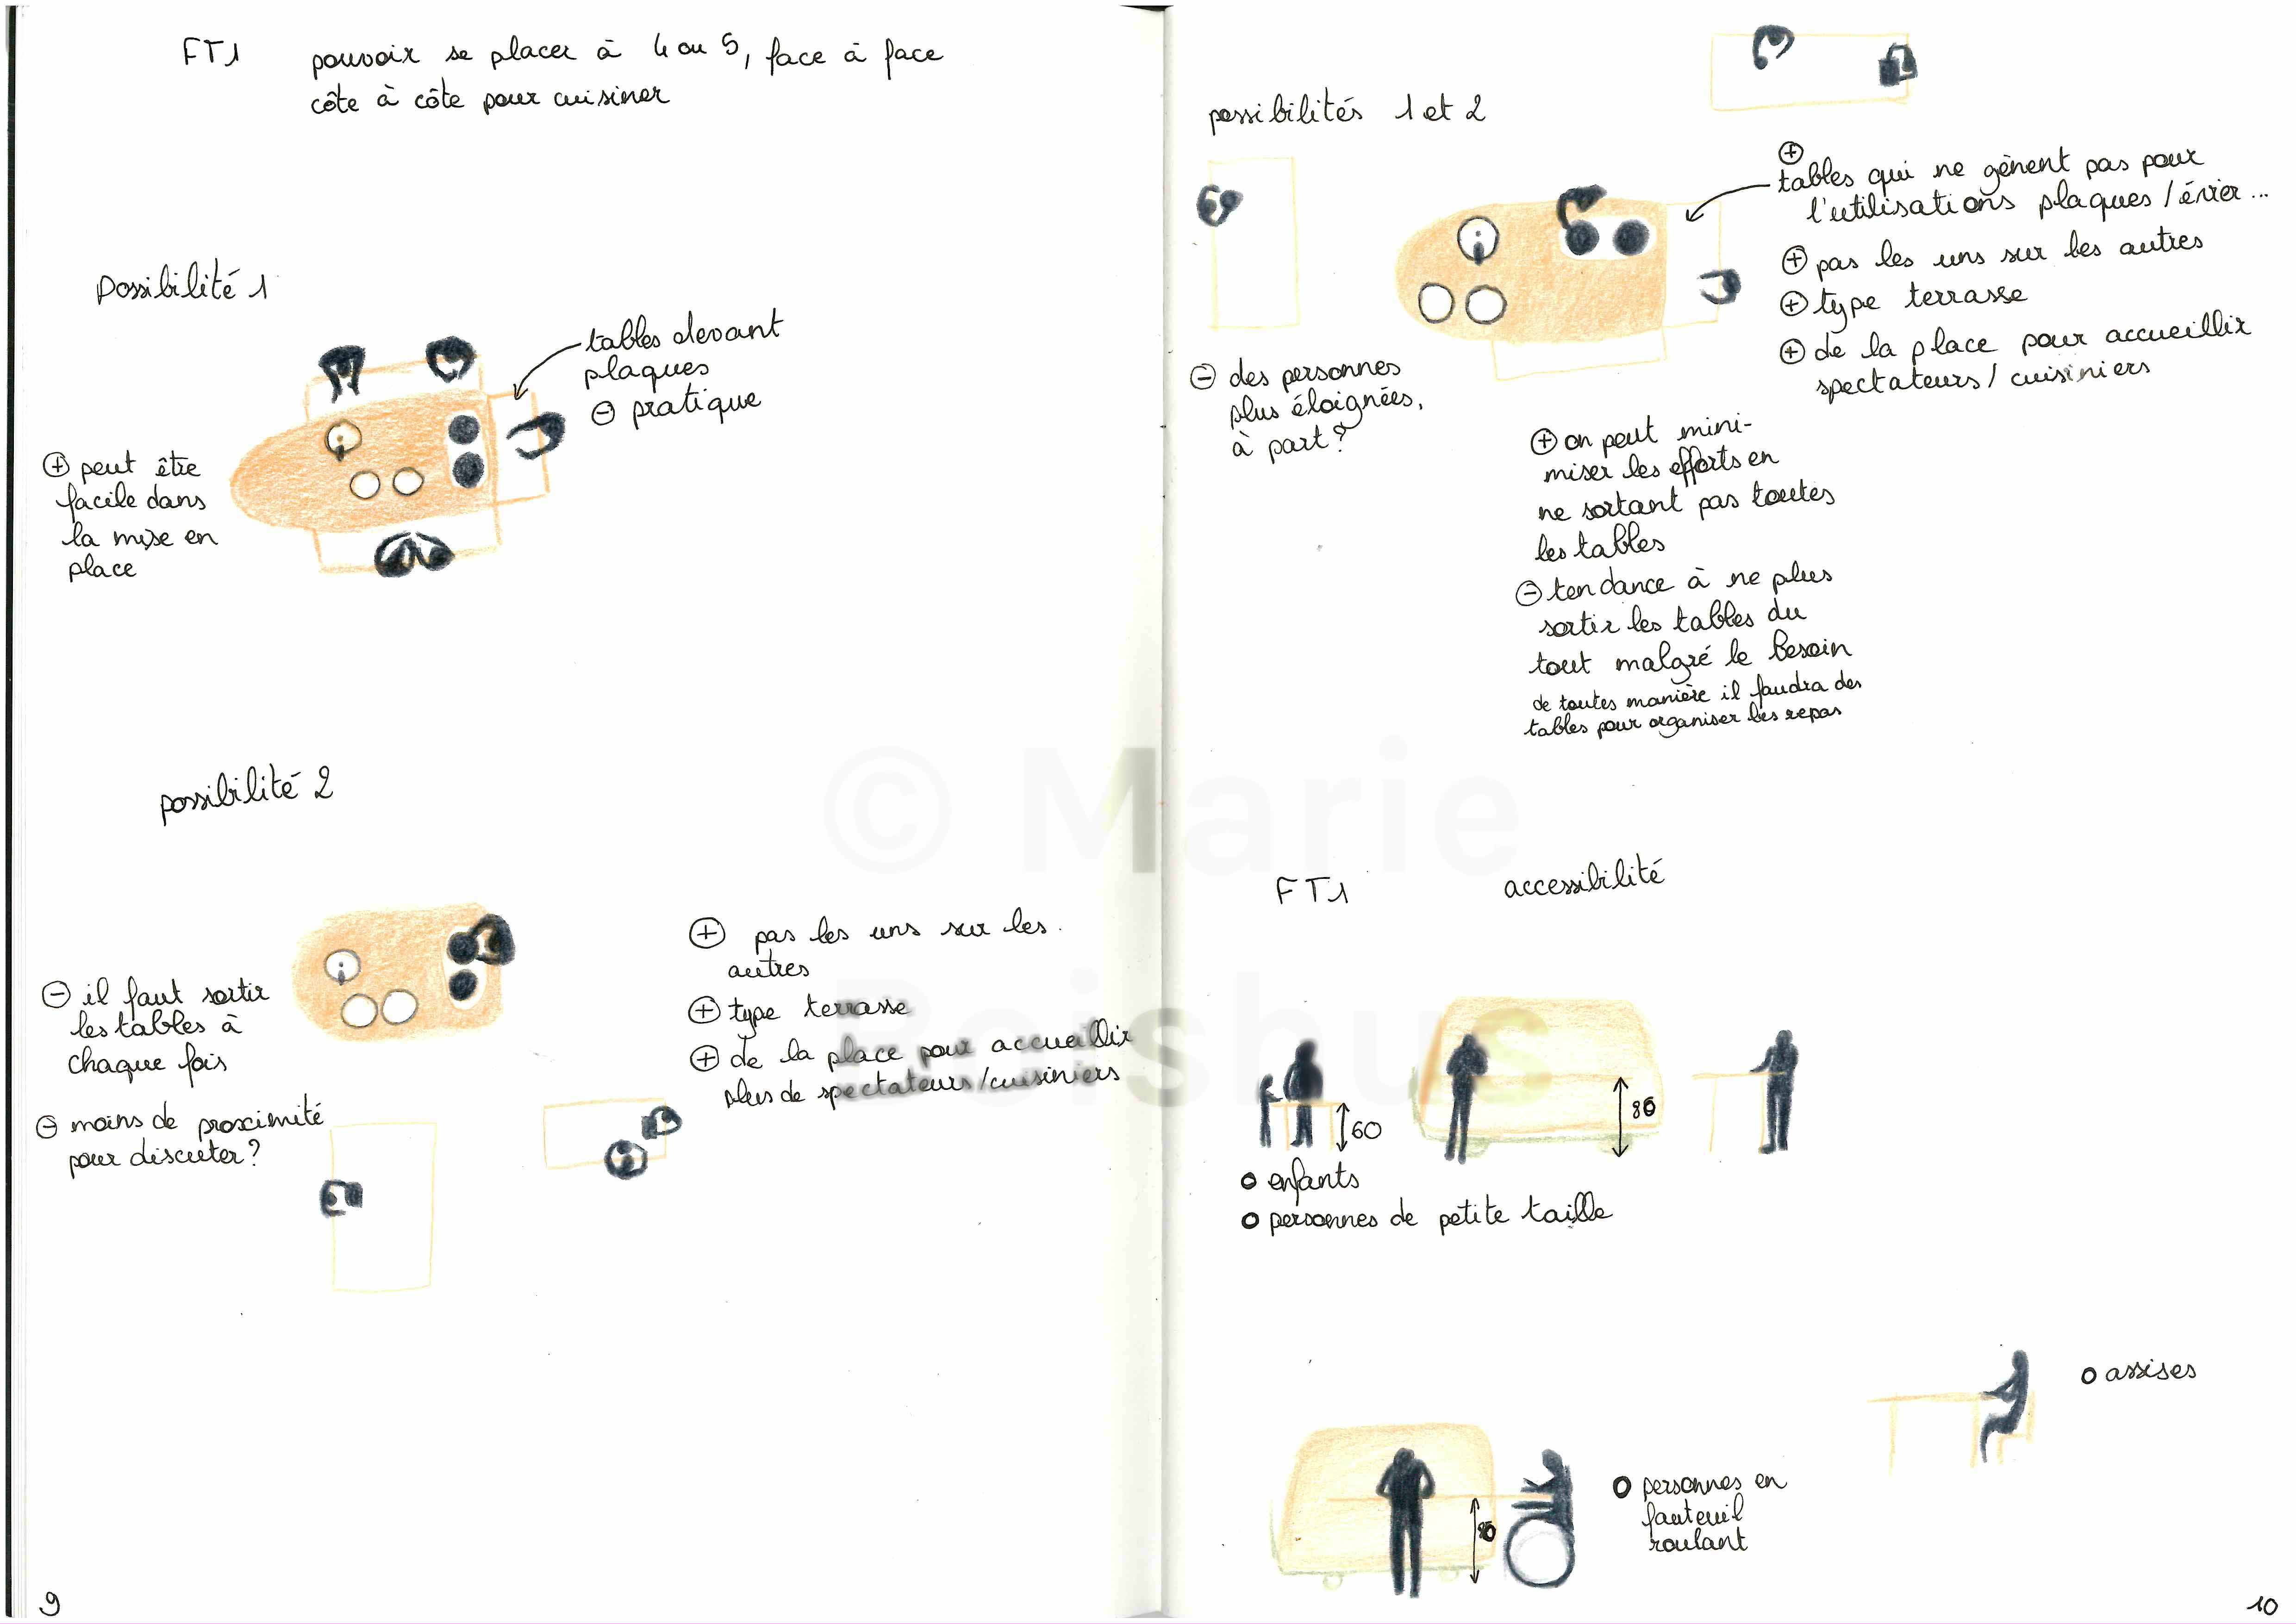 FT1 pouvoir se placer à 4 ou 5, face à face
côte à côte pour cuisiner
Possibilité 1
tables devant
plaques
⊖ pratique
⊕ peut être
facile dans
la mise en
place
possibilité 2
⊖ il faut sortir
les tables à
chaque fois
⊖ moins de proximité
pour discuter?
⊕ pas les uns sur les
autres
⊕ type terrasse
⊕ de la place pour accueillir
plus de spectateurs/cuisiniers
9
possibilités 1 et 2
⊕
tables qui ne gênent pas pour
l'utilisations plaques / évier ...
⊕ pas les uns sur les autres
⊕ type terrasse
⊕ de la place pour accueillir
spectateurs / cuisiniers
⊖ des personnes
plus éloignées,
à part?
⊕ on peut mini-
miser les efforts en
ne sortant pas toutes
les tables
⊖ tendance à ne plus
sortir les tables du
tout malgré le besoin
de toutes manière il faudra des
tables pour organiser les repas
© Marie
Boishus
FT1 accessibilité
60
○ enfants
○ personnes de petite taille
○ assises
○ personnes en
fauteuil
roulant
10